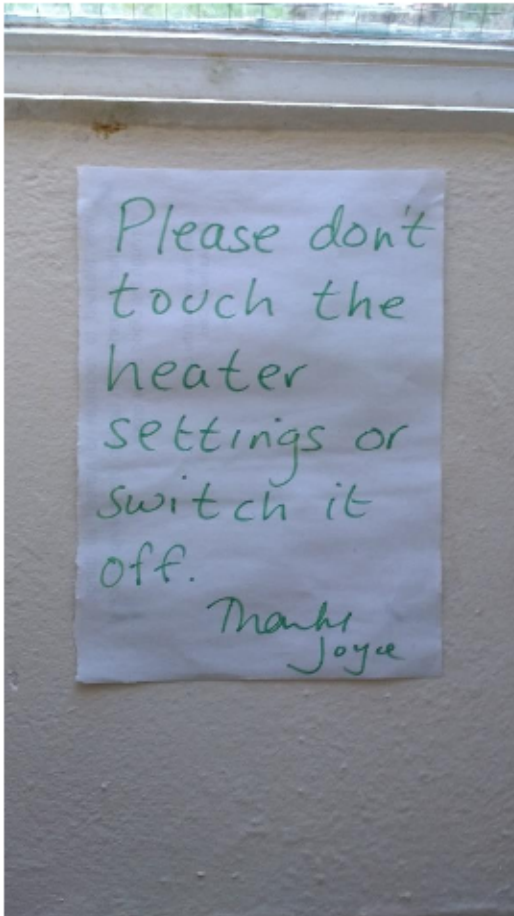 Please don't
touch the
heater
settings or
switch it
off.
Thanks
Joyce